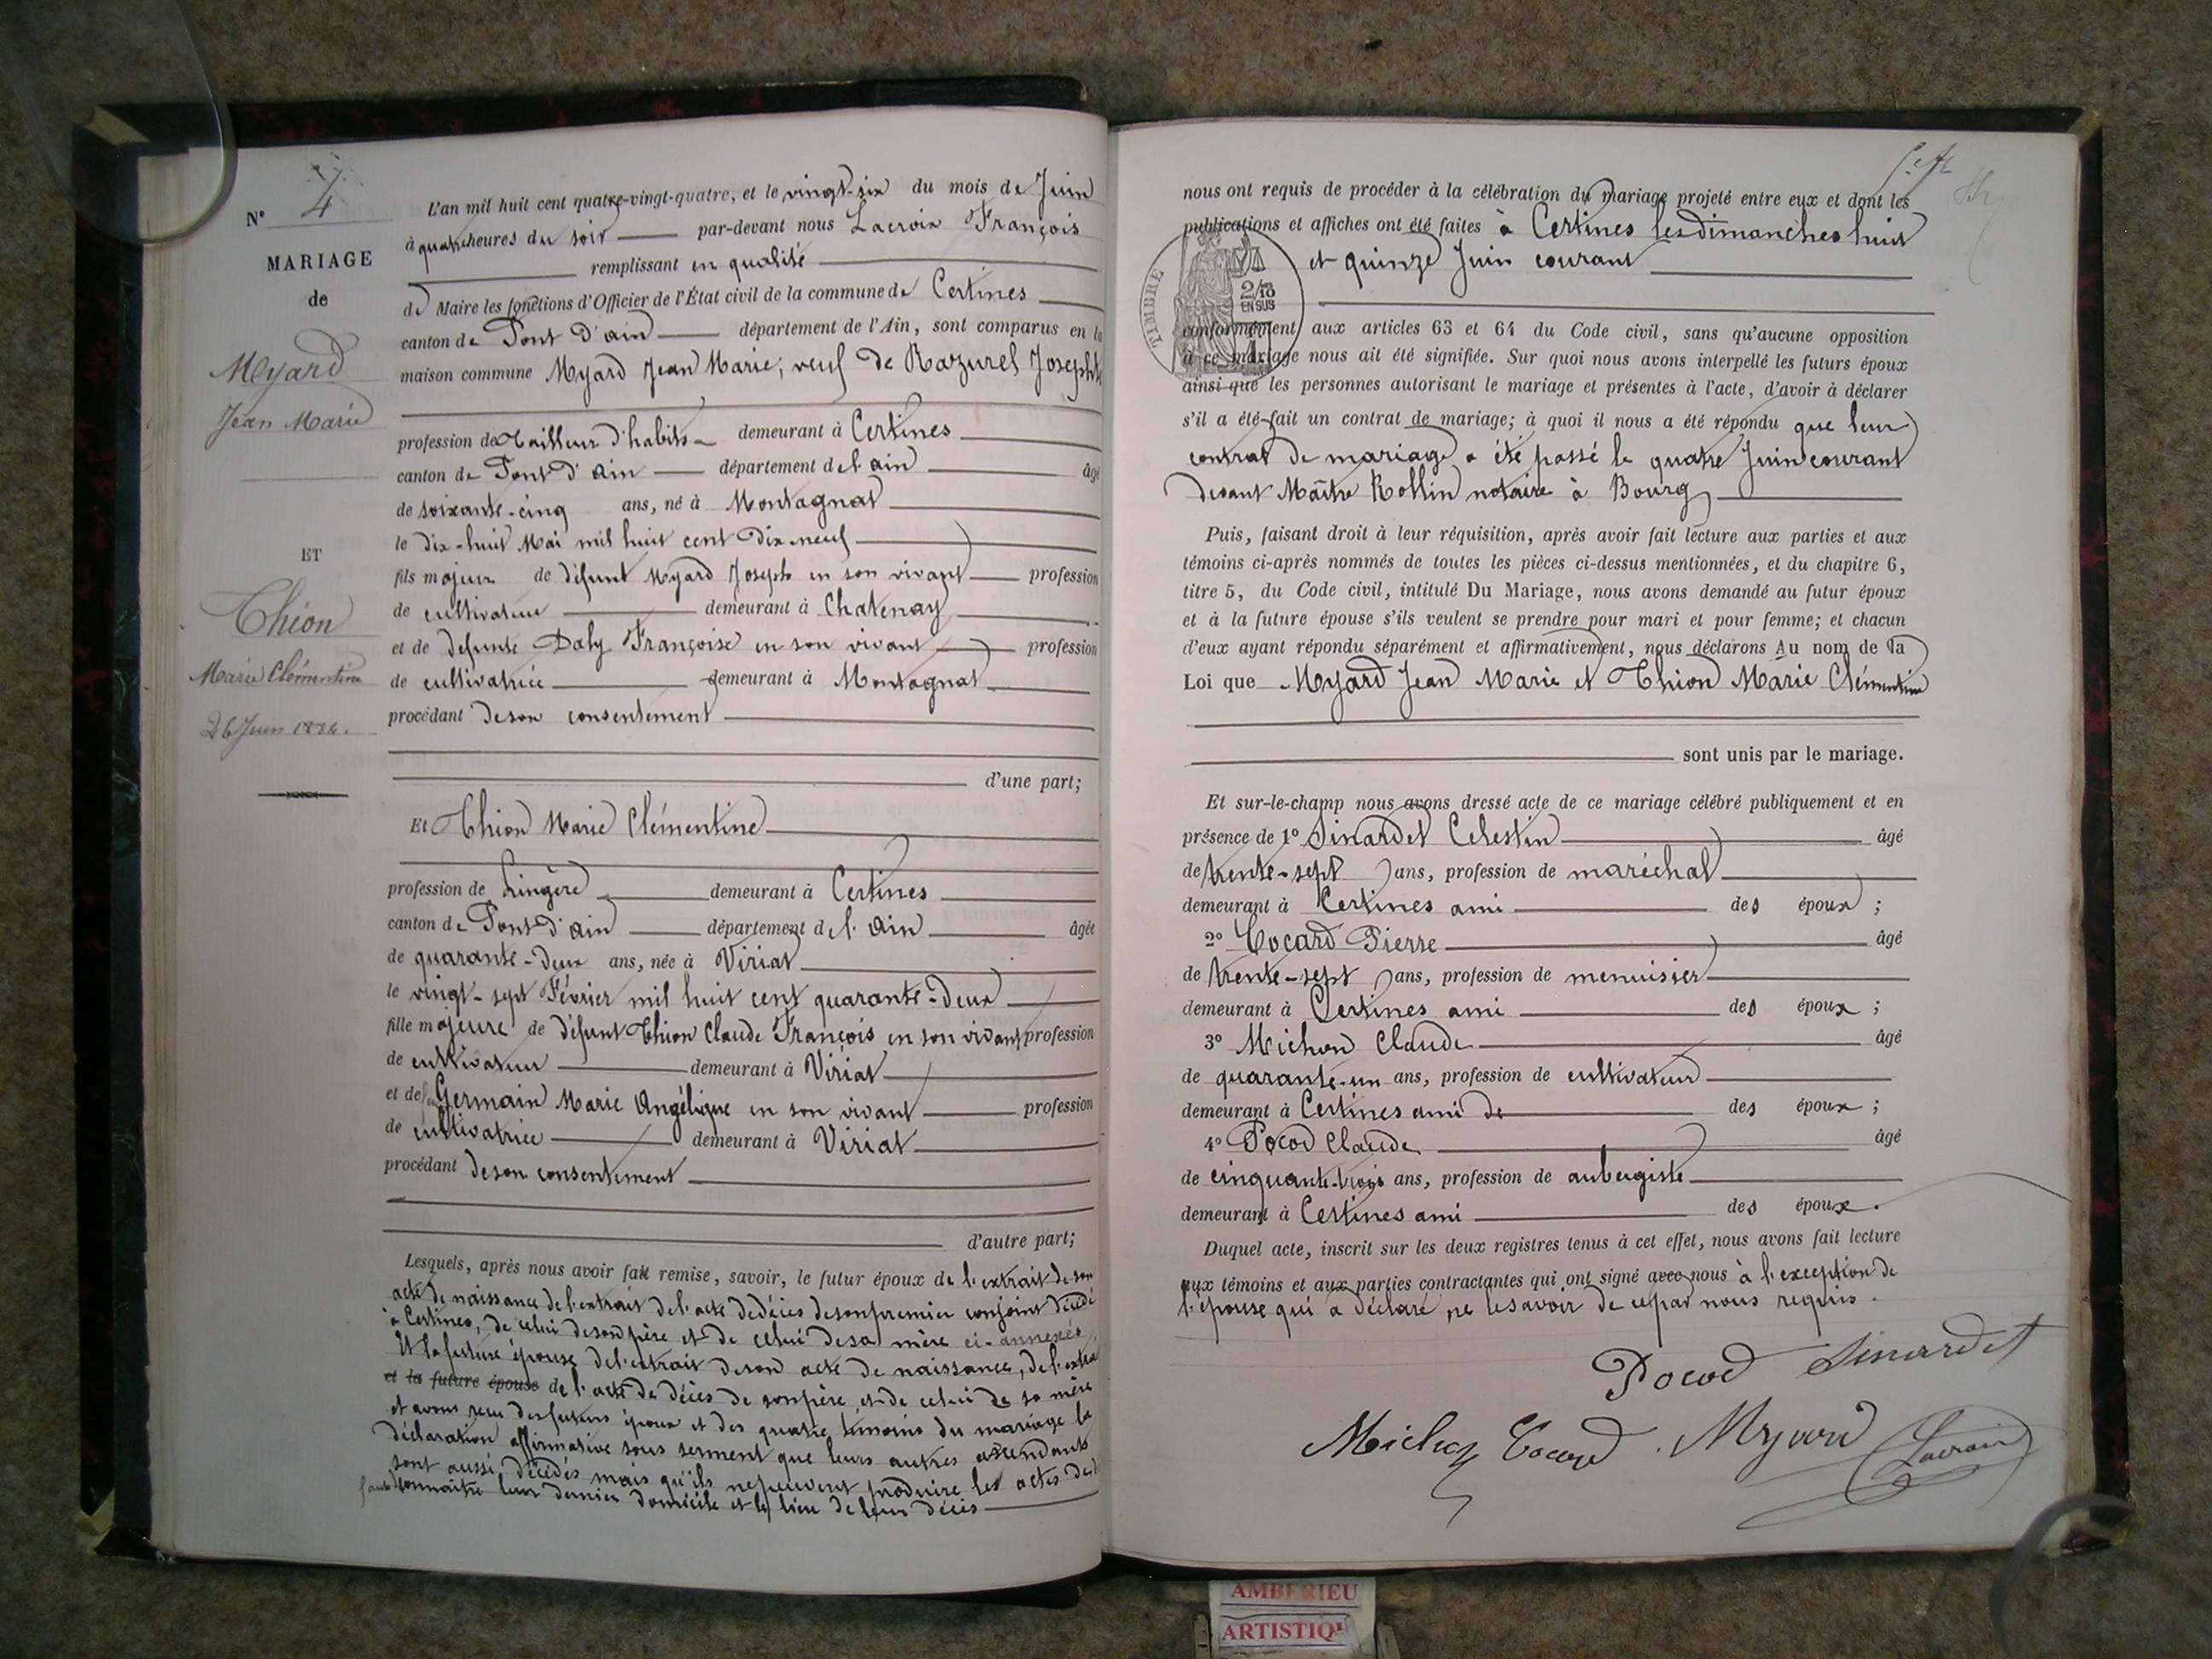 N° 4
MARIAGE
de
Myard
Jean Marie
ET
Thion
Marie Clémentine
26 Juin 1884.
L'an mil huit cent quatre-vingt-quatre, et le vingt-six du mois de Juin
à quatre heures du soir par-devant nous Lacroix François
remplissant en qualité
de Maire les fonctions d'Officier de l'État civil de la commune de Certines
canton de Pont d'ain département de l'Ain, sont comparus en la
maison commune Myard Jean Marie, veuf de Razurel Josephte
profession de Tailleur d'habits demeurant à Certines
canton de Pont d'ain département de l'ain âgé
de soixante-cinq ans, né à Montagnat
le dix-huit Mai mil huit cent dix-neuf
fils majeur de défunt Myard Joseph en son vivant profession
de cultivateur demeurant à Chatenay
et de défunte Daly Françoise en son vivant profession
de cultivatrice demeurant à Montagnat
procédant de son consentement
d'une part;
Et Thion Marie Clémentine
profession de Lingère demeurant à Certines
canton de Pont d'ain département de l'Ain âgée
de quarante-deux ans, née à Viriat
le vingt-sept Février mil huit cent quarante-deux
fille majeure de défunt Thion Claude François en son vivant profession
de cultivateur demeurant à Viriat
et de Germain Marie Angélique en son vivant profession
de cultivatrice demeurant à Viriat
procédant de son consentement
d'autre part;
Lesquels, après nous avoir fait remise, savoir, le futur époux de l'extrait de son
acte de naissance de l'extrait de l'acte de décès de son premier conjoint décédé
à Certines, de celui de son père et de celui de sa mère ci-annexés
Et la future épouse de l'extrait de son acte de naissance, de l'extrait
et la future épouse de l'acte de décès de son père et de celui de sa mère
et avons reçu des futurs époux et des quatre témoins du mariage la
déclaration affirmative sous serment que leurs autres ascendants
sont aussi décédés mais qu'ils ne peuvent produire les actes de
connaître leur dernier domicile et le lieu de leur décès
nous ont requis de procéder à la célébration du mariage projeté entre eux et dont les
publications et affiches ont été faites à Certines les dimanches huit
et quinze Juin courant
TIMBRE
2/10
EN SUS
conformément aux articles 63 et 64 du Code civil, sans qu'aucune opposition
à ce mariage nous ait été signifiée. Sur quoi nous avons interpellé les futurs époux
ainsi que les personnes autorisant le mariage et présentes à l'acte, d'avoir à déclarer
s'il a été fait un contrat de mariage; à quoi il nous a été répondu que leur
contrat de mariage a été passé le quatre Juin courant
devant Maître Rollin notaire à Bourg
Puis, faisant droit à leur réquisition, après avoir fait lecture aux parties et aux
témoins ci-après nommés de toutes les pièces ci-dessus mentionnées, et du chapitre 6,
titre 5, du Code civil, intitulé Du Mariage, nous avons demandé au futur époux
et à la future épouse s'ils veulent se prendre pour mari et pour femme; et chacun
d'eux ayant répondu séparément et affirmativement, nous déclarons Au nom de la
Loi que Myard Jean Marie et Thion Marie Clémentine
sont unis par le mariage.
Et sur-le-champ nous avons dressé acte de ce mariage célébré publiquement et en
présence de 1° Sinardet Celestin âgé
de trente-sept ans, profession de maréchal
demeurant à Certines ami des époux ;
2° Cocard Pierre âgé
de trente-sept ans, profession de menuisier
demeurant à Certines ami des époux ;
3° Michon Claude âgé
de quarante-un ans, profession de cultivateur
demeurant à Certines ami de des époux ;
4° Pocod Claude âgé
de cinquante-trois ans, profession de aubergiste
demeurant à Certines ami des époux.
Duquel acte, inscrit sur les deux registres tenus à cet effet, nous avons fait lecture
aux témoins et aux parties contractantes qui ont signé avec nous à l'exception de
l'épouse qui a déclaré ne le savoir de ce par nous requis.
Pocod Sinardet
Michon Cocard Myard Lacroix
AMBERIEU
ARTISTIQ